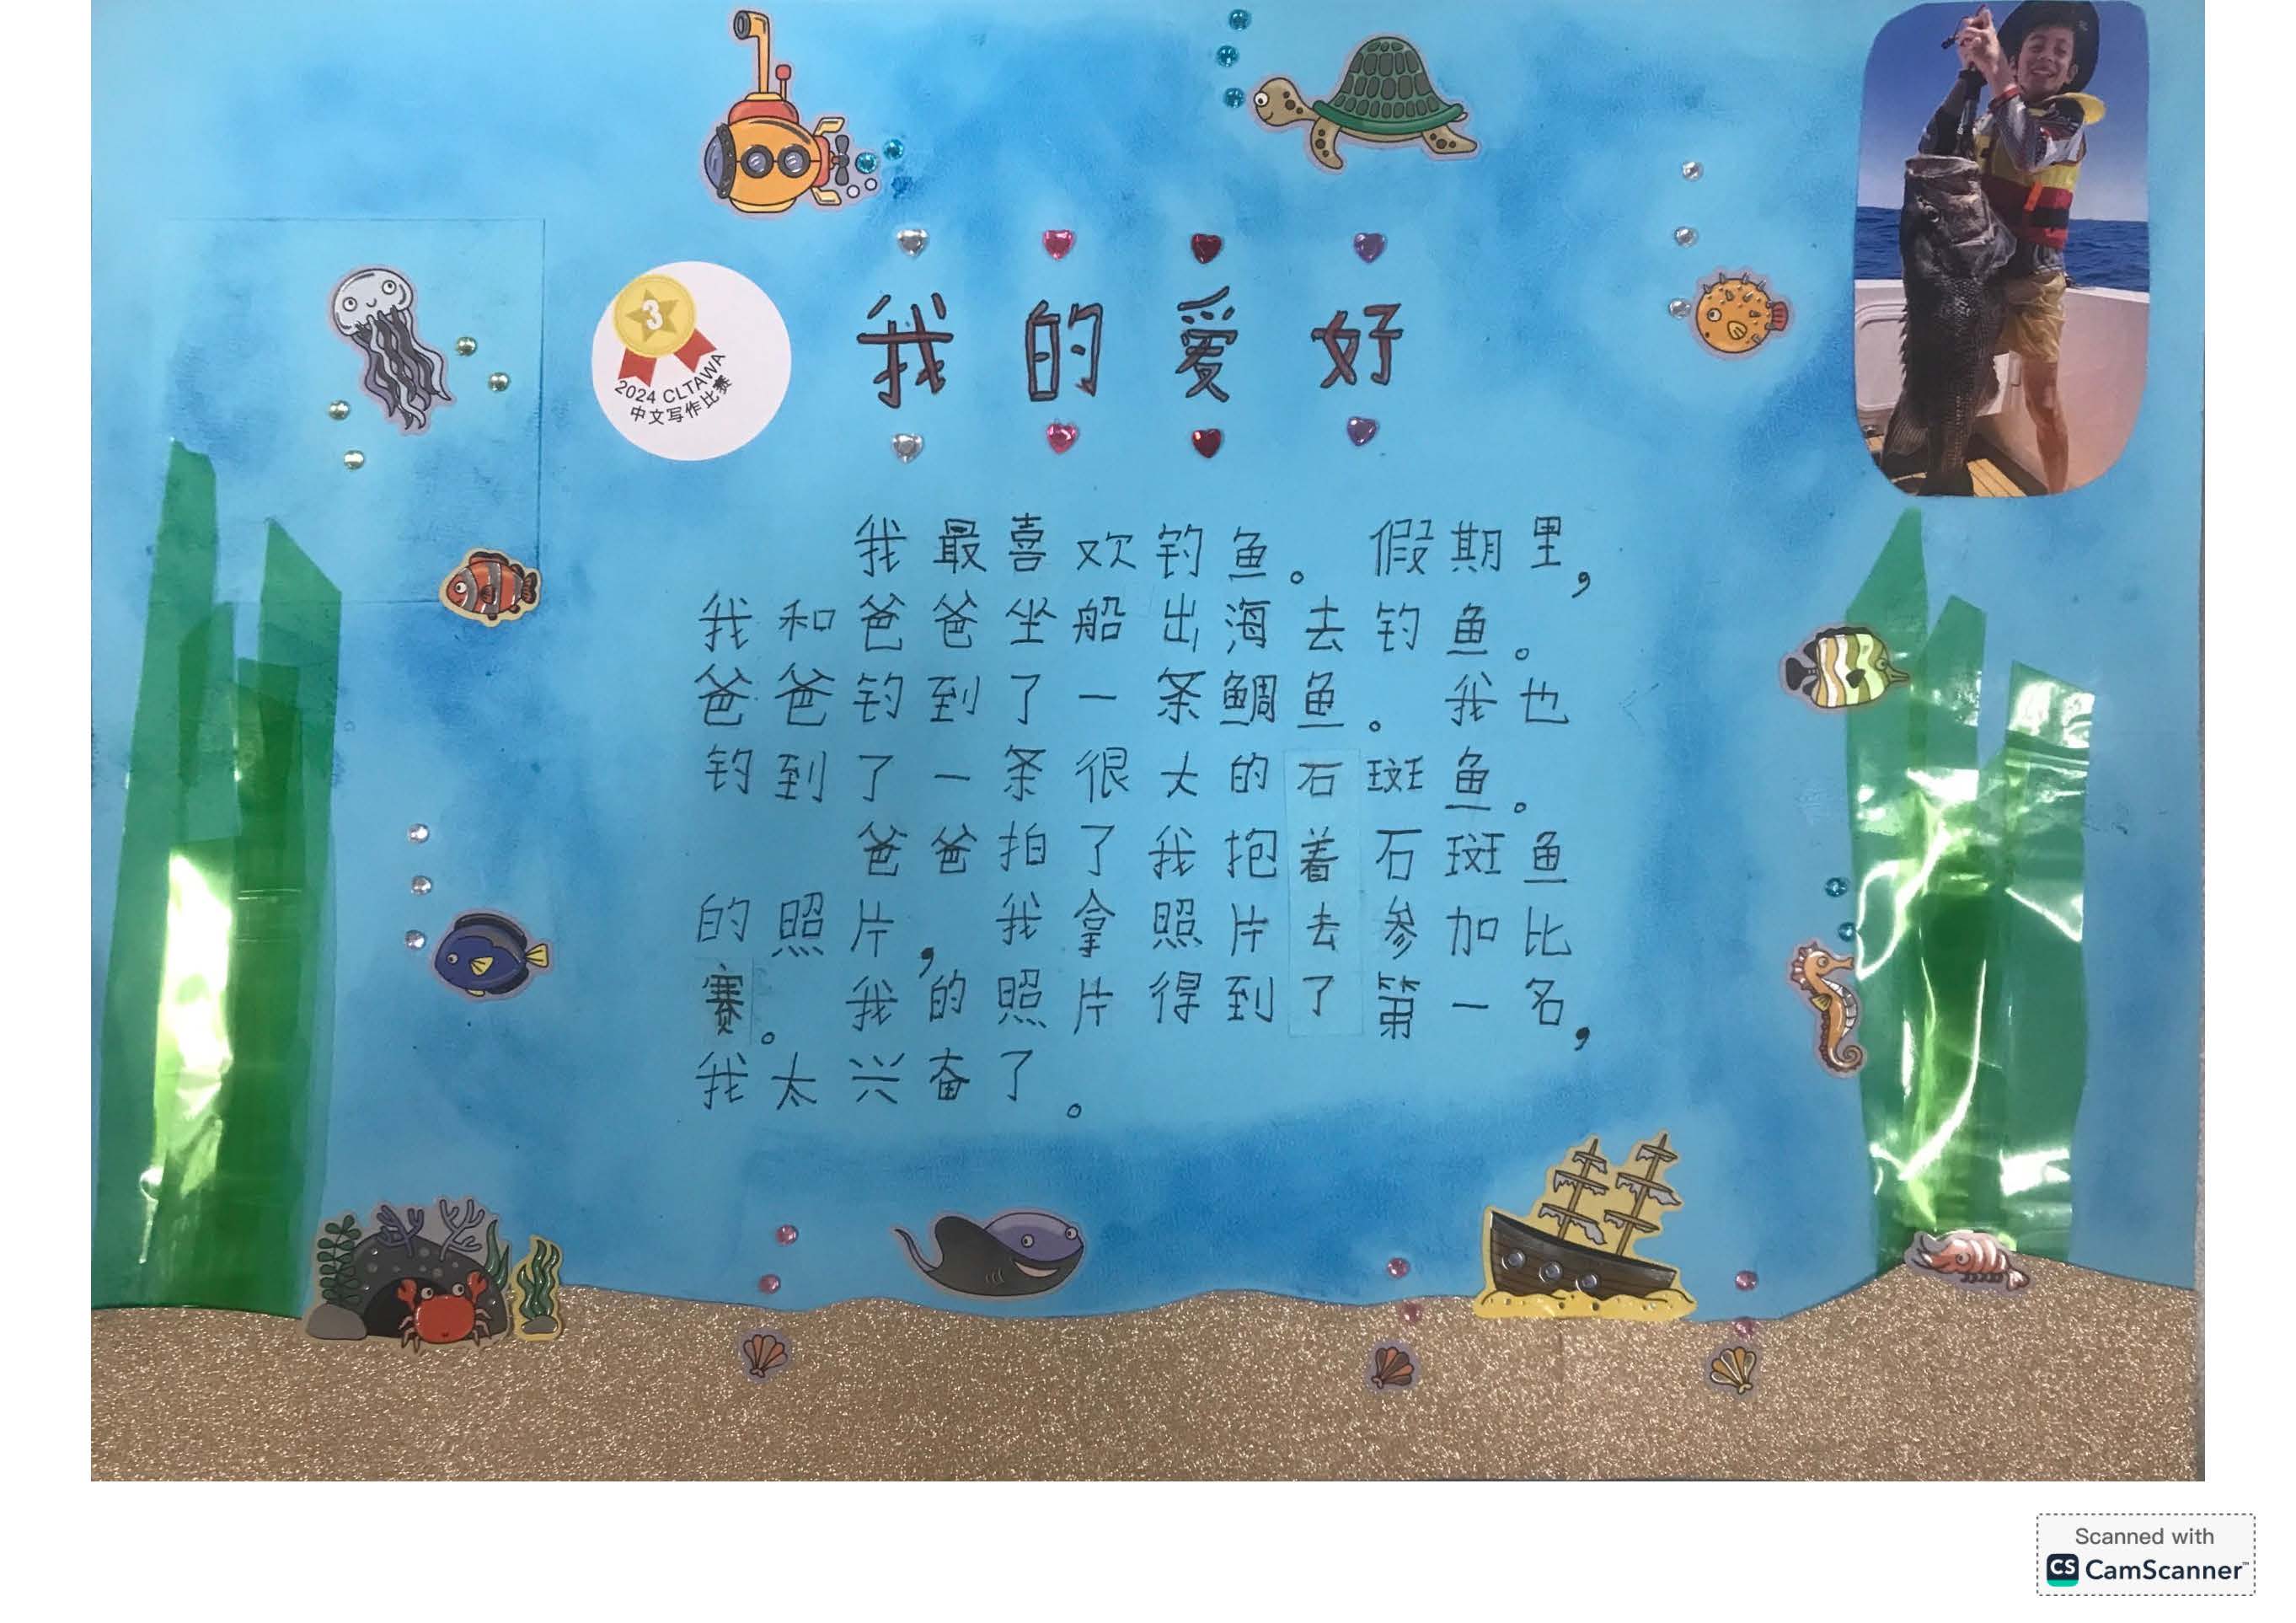 3
2024 CLTAWA
中文写作比赛
我的爱好
我最喜欢钓鱼。假期里，
我和爸爸坐船出海去钓鱼。
爸爸钓到了一条鲷鱼。我也
钓到了一条很大的石斑鱼。
爸爸拍了我抱着石斑鱼
的照片，我拿照片去参加比
赛。我的照片得到了第一名，
我太兴奋了。
Scanned with
CS CamScanner™